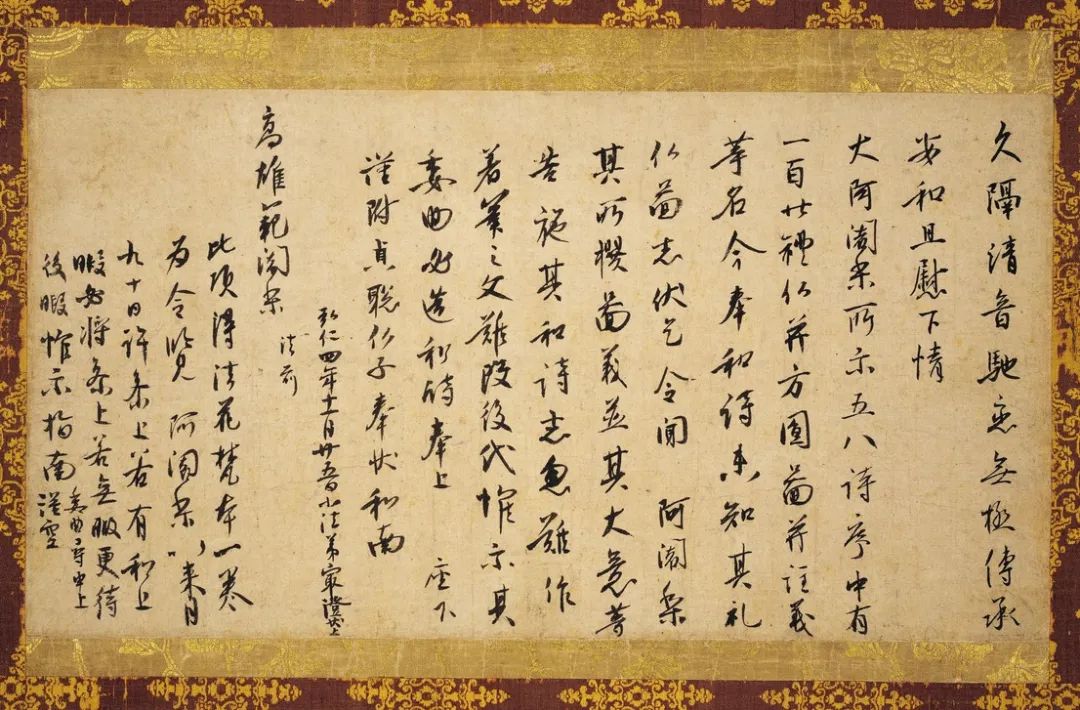 久隔清音馳恋無極傳承
安和且慰下情
大阿闍梨所示五八詩序中有
一百廿禮仏并方圓圖并註義
等名今奉和詩未知其礼
仏圖者伏乞令聞 阿闍梨
其所撰圖義並其大意等
告施其和詩者忽難作
著筆之文難改後代惟示其
委曲必造和詩奉上 座下
謹附貞聡仏子奉状和南
弘仁四年十一月廿五日小法弟最澄状上
高雄範闍梨
法前
此頃得法花梵本一巻
為令覧 阿闍梨以来月
九十日許参上若有和上
暇必将参上若無暇更待
後暇惟示指南
委曲尋申上
謹空